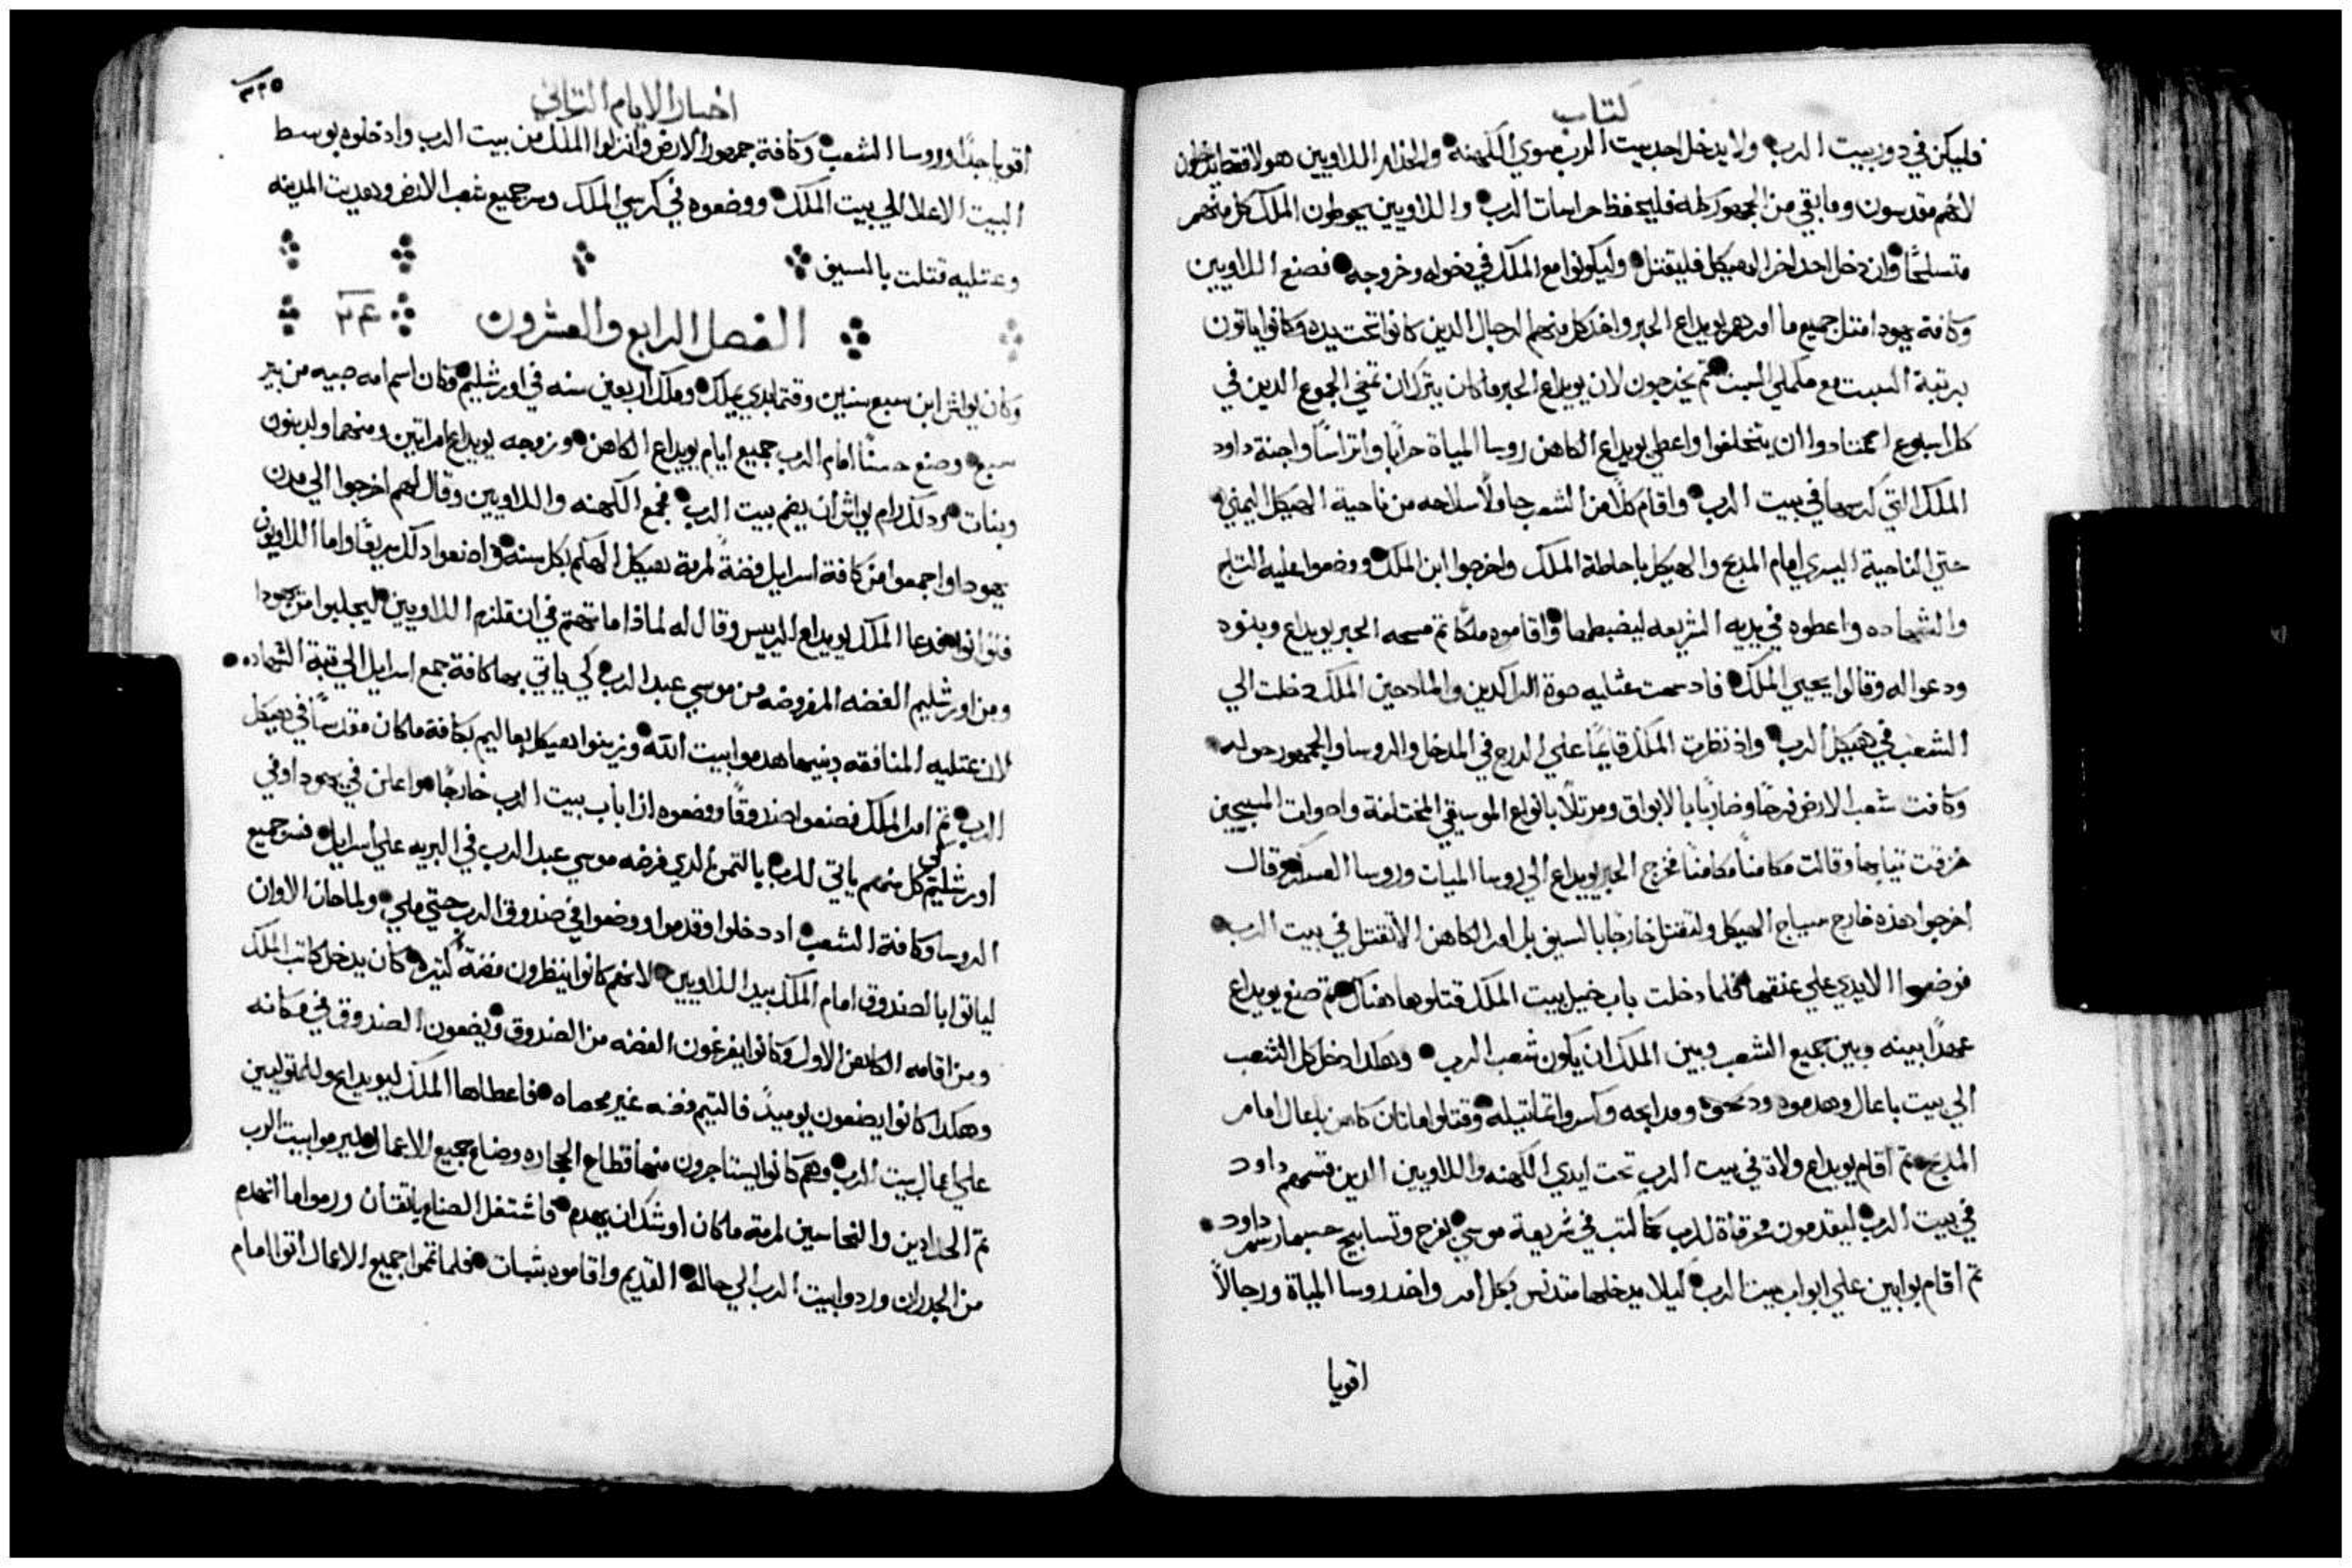 كتاب
فليكن في دور بيت الرب ولا يدخل احد بيت الرب سوي الكهنه والخدام اللاويين هولا فقط يدخلون
لانهم مقدسون وما بقي من الجمهور كله فليحفظ حراسات الرب واللاويين يحوطون الملك كل منهم
متسلحًا وان دخل احد اخر الهيكل فليقتل وليكونوا مع الملك في دخوله وخروجه فصنع اللاويين
وكافة يهودا مثل جميع ما امرهم يويداع الحبر واخذ كل منهم الرجال الدين كانوا تحت يده وكانوا ياتون
برتبة السبت مع مكملي السبت ثم يخرجون لان يويداع الحبر ما كان يترك ان تمضي الجموع الدين في
كل اسبوع اعتادوا ان يتخلفوا واعطي يويداع الكاهن روسا المياة حرابًا واتراسًا واجنة داود
الملك التي كرسها في بيت الرب واقام كلًا من الشعب حاملًا سلاحه من ناحية الهيكل اليمني
حتي الناحية اليسري امام المدبح والهيكل باحاطة الملك واخرجوا ابن الملك ووضعوا عليه التاج
والشهاده واعطوه في يديه الشريعه ليضبطها واقاموه ملكًا ثم مسحه الحبر يويداع وبنوه
ودعوا له وقالوا يحيي الملك فاد سمعت عتليه صوة الراكدين والمادحين الملك دخلت الي
الشعب في هيكل الرب واذ نظرت الملك قايمًا علي الدرج في المدخل والروسا والجمهور حوله
وكافت شعب الارض فرحًا وضاربًا بالابواق ومرتلًا بانواع الموسيقي المختلفة واصوات المسبحين
مزقت تيابها وقالت مكامنًا مكامنًا فخرج الحبر يويداع الي روسا الميات وروسا العسكر وقال
اخرجوا هذه خارج سياج الهيكل ولتقتل خارجًا بالسيف بل امر الكاهن الا تقتل في بيت الرب
فوضعوا الايدي علي عنقها فلما دخلت باب خيل بيت الملك قتلوها هناك ثم صنع يويداع
عهدًا بينه وبين جميع الشعب وبين الملك ان يكون شعب الرب وهكدا دخل كل الشعب
الي بيت باعال وهدموه ومدابحه وكسروا تماتيله وقتلوا ماتان كاهن باعال امام
المدبح ثم اقام يويداع ولاة في بيت الرب تحت ايدي الكهنه واللاويين الدين قسمهم داود
في بيت الرب ليقدمون محرقاة للرب كما كتب في شريعة موسي بفرح وتسابيح حسبما رسم داود
ثم اقام بوابين علي ابواب بيت الرب ليلا يدخلها متدنس بكل امر واخد روسا المياة ورجالًا
اقويا
٣٢٥
اخبار الايام التاني
اقويا جدًا وروسا الشعب وكافة جمهور الارض وانزلوا الملك من بيت الرب وادخلوه بوسط
البيت الاعلا الي بيت الملك ووضعوه في كرسي الملك وسر جميع شعب الارض وهديت المدينه
وعتليه قتلت بالسيف
الفصل الرابع والعشرون ٢٤
وكان يواش ابن سبع سنين وقتما بدي يملك وملك اربعين سنه في اورشليم وكان اسم امه صبيه من بير
سبع وصنع حسنًا امام الرب جميع ايام يويداع الكاهن وزوجه يويداع امراتين ومنهما ولد بنون
وبنات بعد دلك رام يواش ان يضم بيت الرب فجمع الكهنه واللاويين وقال لهم اخرجوا الي مدن
يهودا واجمعوا من كافة اسرايل فضةً لمرمة هيكل الهكم بكل سنه واصنعوا دلك سريعًا واما اللاويون
فتوانوا فدعا الملك ليويداع الرييس وقال له لماذا ما تهتم في ان تلزم اللاويين ليجلبوا من يهودا
ومن اورشليم الفضه المفروضه من موسي عبد الرب كي ياتي بها كافة جمع اسرايل الي قبة الشهاده
لان عتليه المنافقه وبنيها هدموا بيت الله وزينوا هيكل بعاليم بكافة ما كان مقدسًا في هيكل
الرب ثم امر الملك فصنعوا صندوقًا ووضعوه ازا باب بيت الرب خارجًا واعلن في يهودا وفي
اورشليم كي كل منهم ياتي للرب بالتمن الدي فرضه موسي عبد الرب في البريه علي اسرايل فسر جميع
الروسا وكافة الشعب اد دخلوا وقدموا ووضعوا في صندوق الرب حتي ملي ولما حان الاوان
لياتوا بالصندوق امام الملك بيد اللاويين لانهم كانوا ينظرون فضةً كتيره كان يدخل كاتب الملك
ومن اقامه الكاهن الاول وكانوا يفرغون الفضه من الصندوق ويضعون الصندوق في مكانه
وهكدا كانوا يضعون يوميدً فالتيم فضه غير محصاه فاعطاها الملك ليويداع وللمتوليين
علي اعمال بيت الرب وهم كانوا يستاجرون منها قطاع الحجاره وصناع جميع الاعمال ليرموا بيت الرب
ثم الحدادين والنحاسين لمرمة ما كان اوشك ان يهدم فاشتغل الصناع باتقان ورموا ما انهدم
من الجدران وردوا بيت الرب الي حاله القديم واقاموه بتبات فلما تموا جميع الاعمال اتوا امام